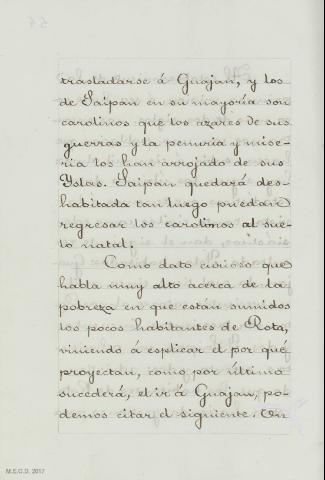 trasladarse á Guajan, y los
de Saipan en su mayoría son
carolinos que los azares de sus
guerras y la penuria y mise-
ria los han arrojado de sus
Yslas. Saipan quedará des-
habitada tan luego puedan
regresar los carolinos al sue-
lo natal.
Como dato curioso que
habla muy alto acerca de la
pobreza en que están sumidos
los pocos habitantes de Rota,
viniendo á esplicar el por qué
proyectan, como por último
sucederá, el ir á Guajan, po-
demos citar el siguiente. Un
M.E.C.D. 2017